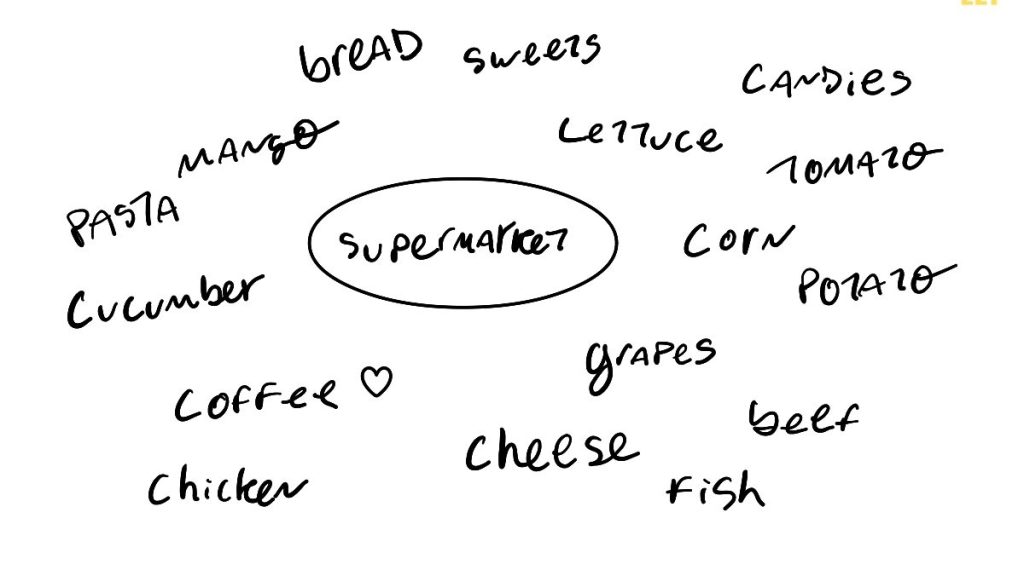 breAD
sweets
CANDies
Lettuce
MANgO
TOMATO
PASTA
supermarket
corn
POTATO
cucumber
grApes
coffee ♡
beef
cheese
chicken
fish